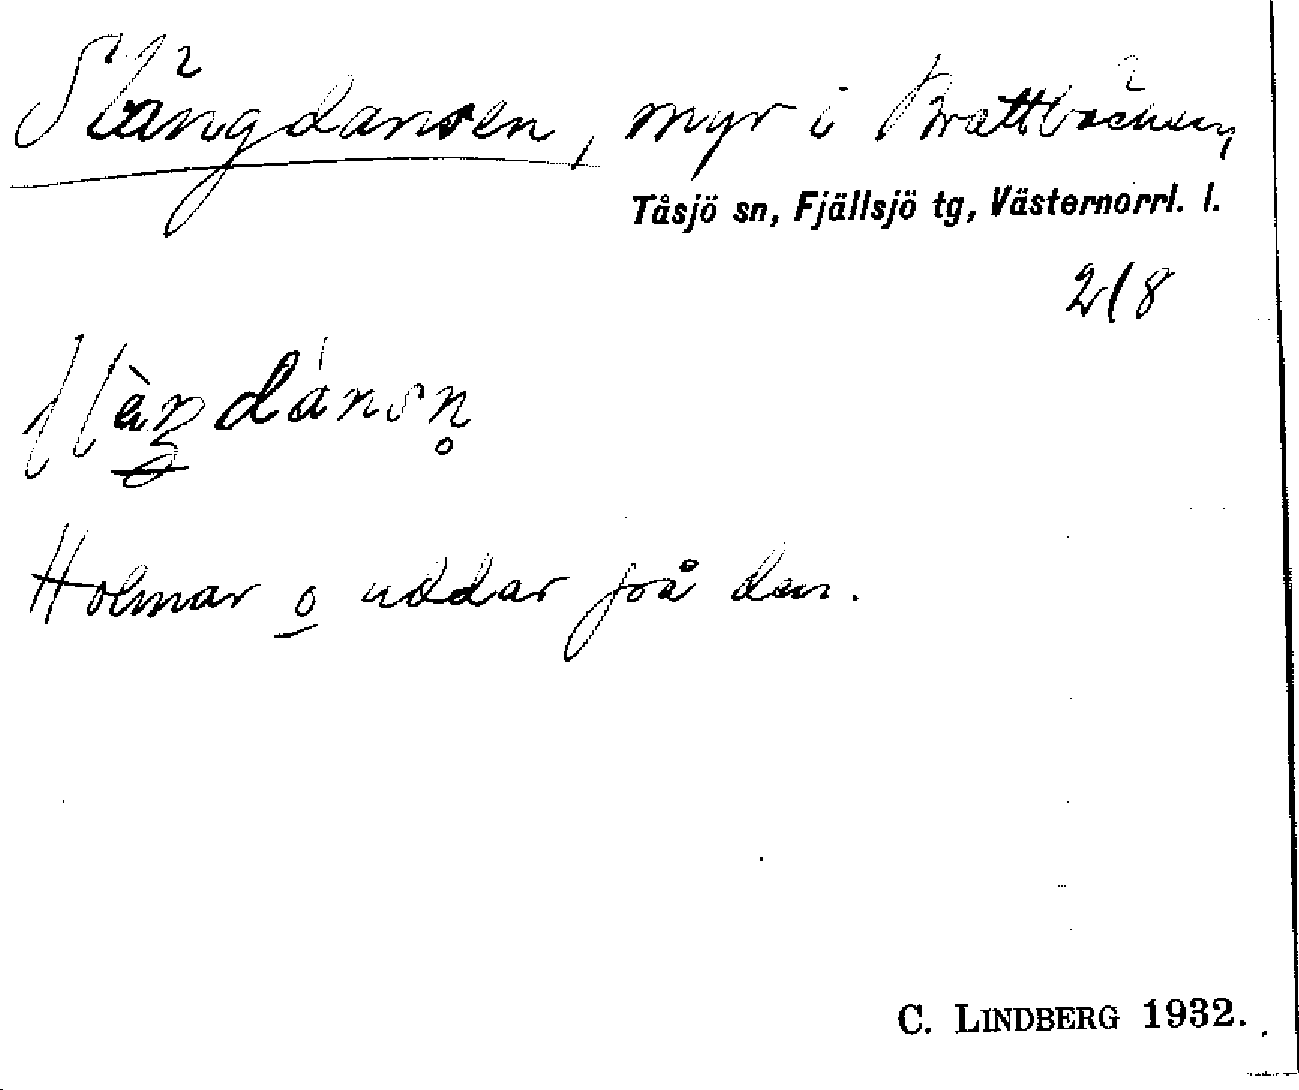 Slängdansen, myr i Brattbäcken,
Tåsjö sn, Fjällsjö tg, Västernorrl. l.
2/8
Holmar o uddar på den.
C. LINDBERG 1932.